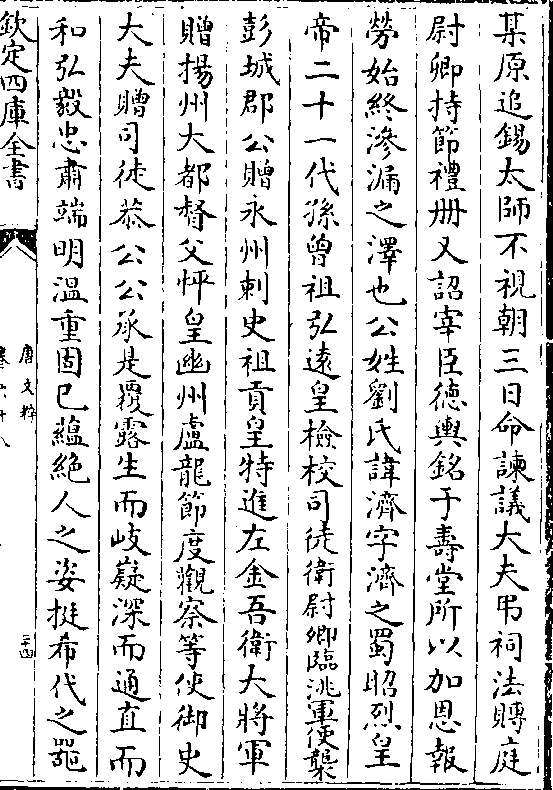 某原追錫太師不視朝三日命諫議大夫弔祠法賻庭
尉卿持節禮册又詔宰臣德輿銘于壽堂所以加恩報
勞始終滲漏之澤也公姓劉氏諱濟字濟之蜀昭烈皇
帝二十一代孫曾祖弘遠皇檢校司徒衛尉卿臨洮軍使襲
彭城郡公贈永州刺史祖貢皇特進左金吾衛大將軍
贈揚州大都督父怦皇幽州盧龍節度觀察等使御史
大夫贈司徒恭公公承是覆露生而岐嶷深而通直而
和弘毅忠肅端明溫重固已蘊絶人之姿挺希代之噐
欽定四庫全書
唐文粹
卷六十八
三十四